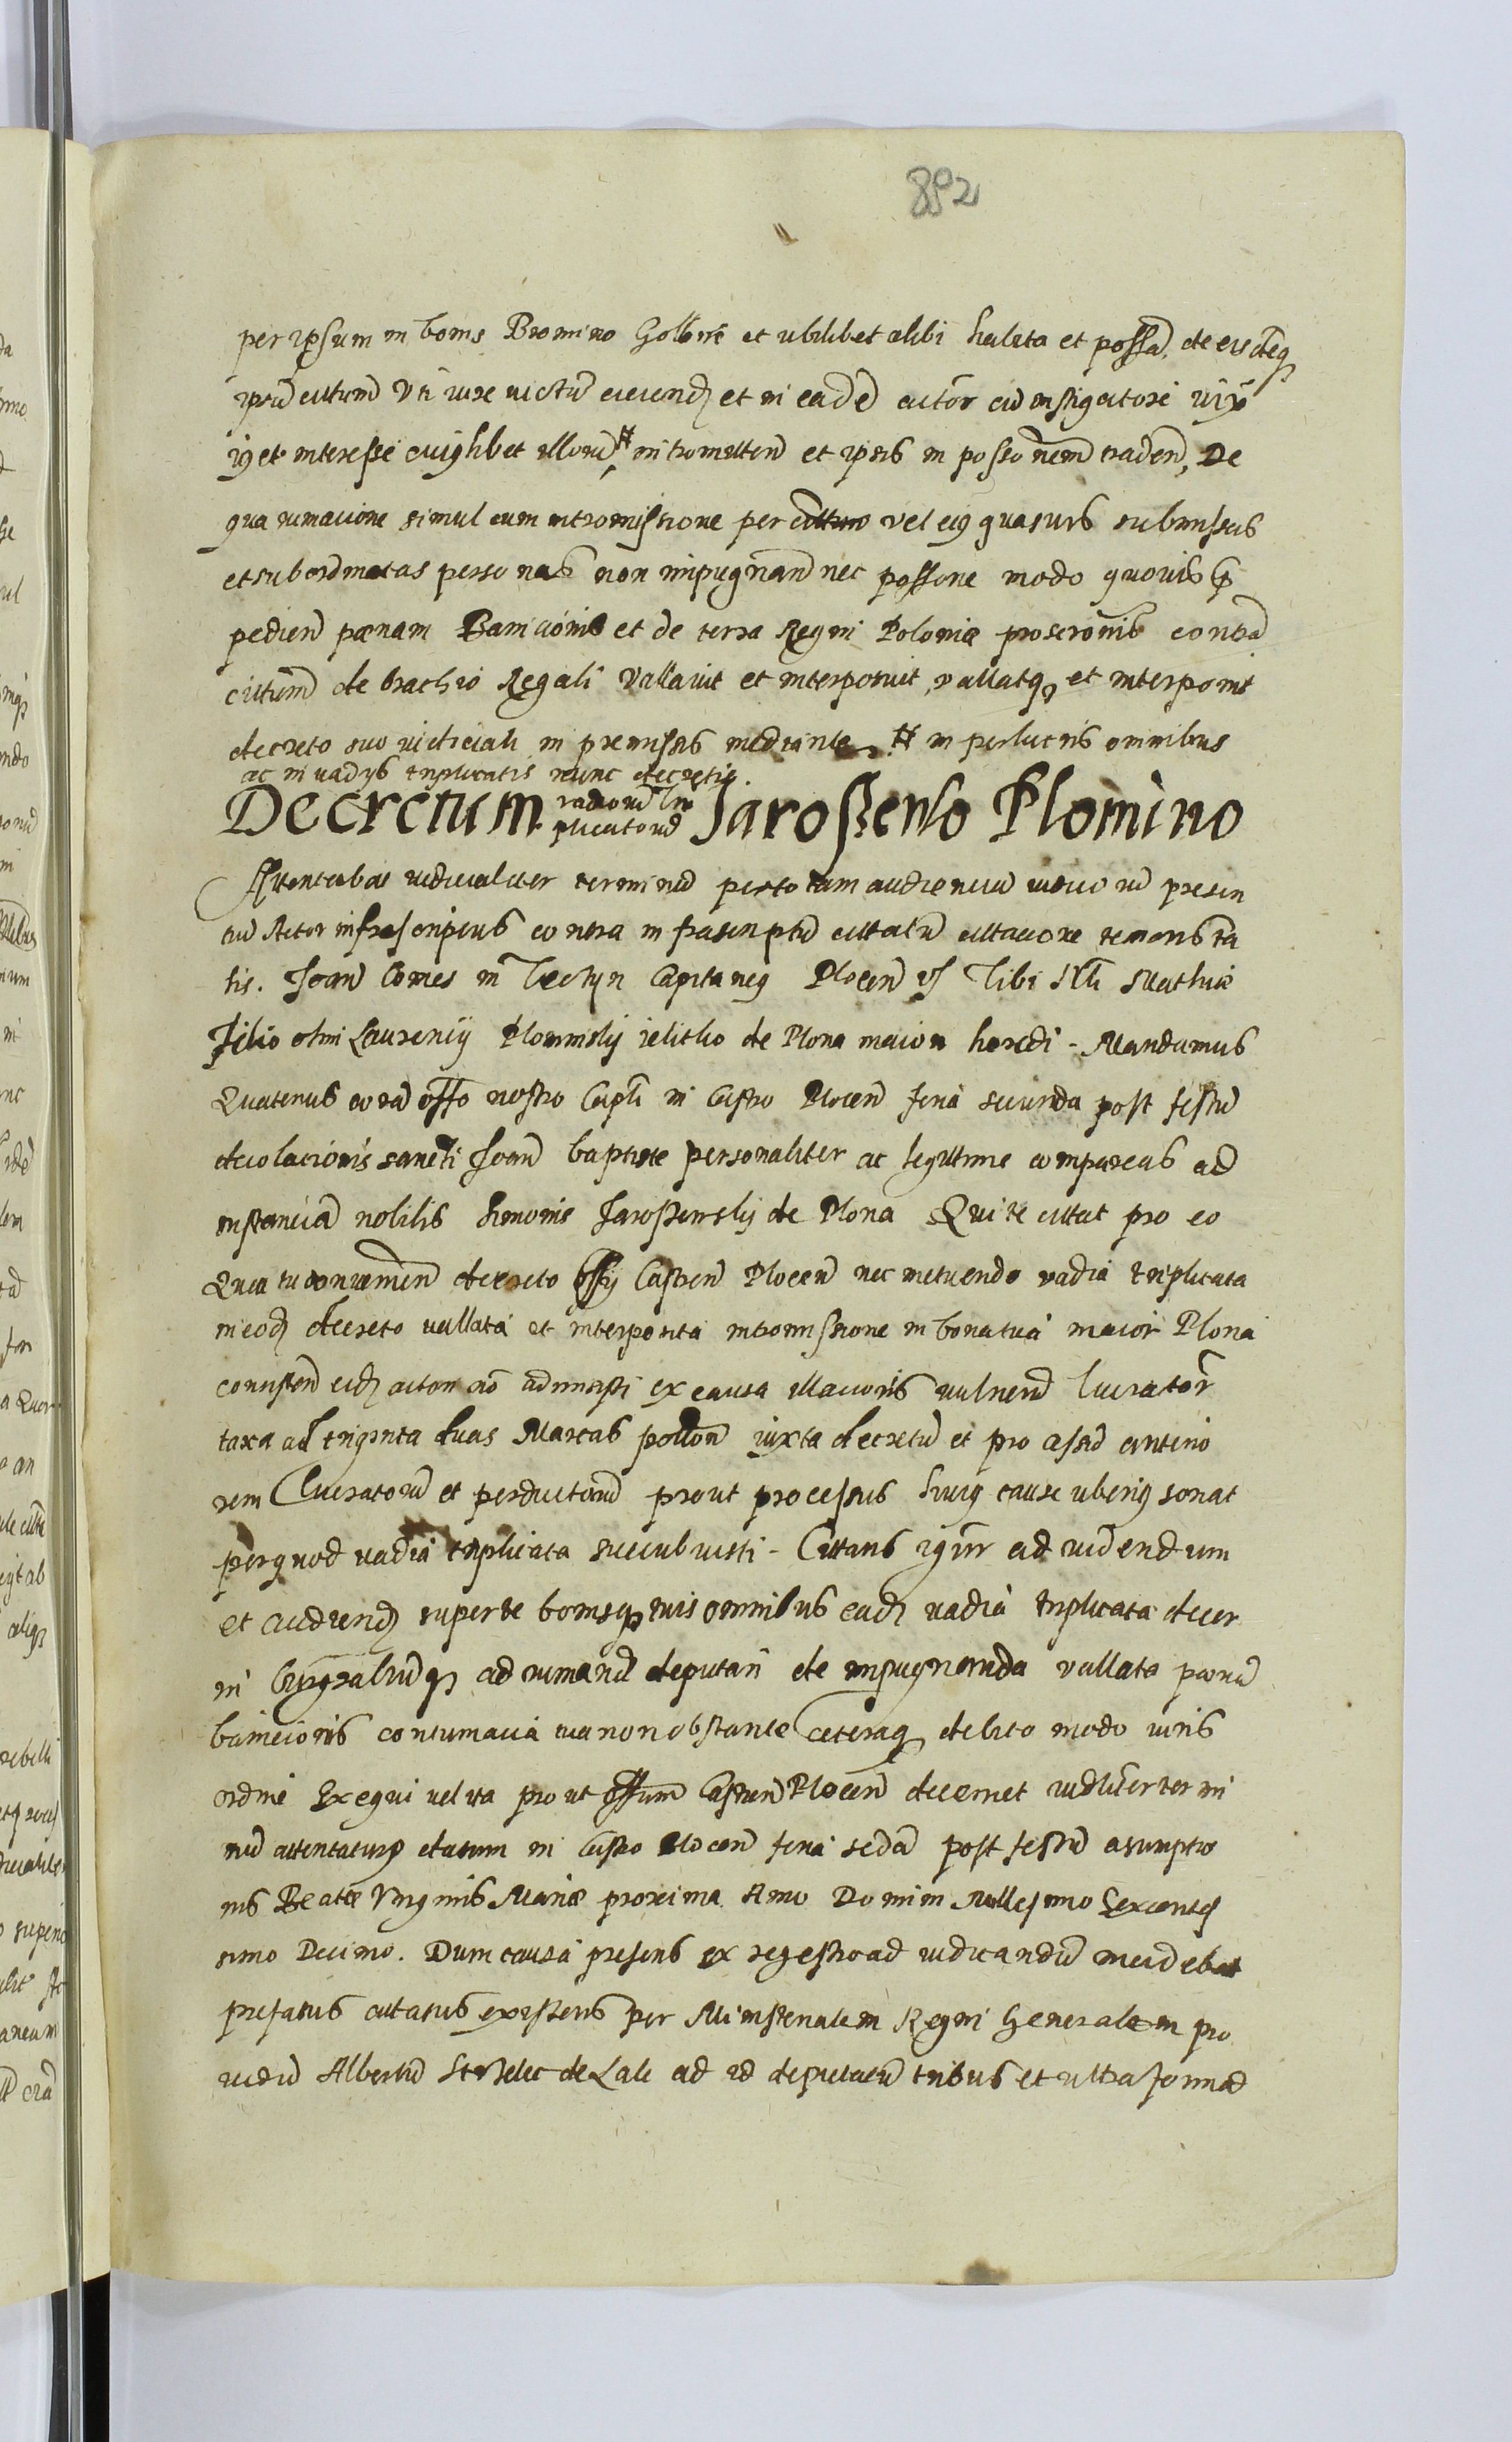 892
per ipsum in bonis Bromino Golbne et ubilibet alibi habita et possa, de eis demq
ipsu citatum Uti iure victu eiciend et in eade actor cu instigatore iux
iq et interesse cuiuslibet illoru # intromitten et ipsis in possonem traden, De
qua rumacione simul cum intromissione per citatum vel eiq quasvis submissas
et subordinatas personas non impugnand nec possone modo quovis
pedien pœnam Baniciónis et de terra Regni Poloniæ proscrònis contra
citatum de brachio Regali Vallavit et interposuit, vallatq et interponit
decreto suo iudiciali in premissis mediante # in perlucris omnibus
ac in vadys triplicatis nunc decretis.
Decretum vadioru tri plicatoru Jaroszewsko Plomino
Attentabat iudicialiter terminu per totam audienciam iudicioru presen
tiu Actor infrascriptus contra infrascriptu citatu citacione tenoris ta
lis. Joan Comes in Techyn Capitaneq Plocen Tibi Nli Mathiæ
filio olim Laurency Plominsky ielitko de Plona maiori heredi - Mandamus
Quatenus cora offo nostro Capli in Castro Plocen feria secunda post festu
decolacionis sancti Joan baptiste personaliter ac legittime compareas ad
instancia nobilis Simonis Jaroszewsky de Plona Qui te citat pro eo
Quia tu conveniien decreto offy Castren Plocen nec metuendo vadia triplicata
in eod decreto vallata et interposita intromissione in bona tua maior Plona
consisten eid actori no admisisti ex causa illacionis vulneru lucrator
taxa ad triginta duas Marcas pollon iuxta decretu et pro asseu
rem Lucratoru et perductoru prout processus huiq cause uberiq sonat
per quod vadia triplicata succubuisti - Cittans igitr ad videndum
et audiend super te bonisq tuis omnibus ead vadia triplicata decer
ni Burgrabiuq ad rumand deputari de impugnanda vallata pœna
banicionis contumacia tua non obstante Ceteraq debito modo iuris
ordine Exequi velita prout offum Castren Plocen decernet iudliter termi
nu attentaturq datum in Castro Plocen feria secda post festu asumptio
nis Beatæ Virginis Mariæ proxima Anno Domini Millesimo Sexcentes
simo Decimo. Dum causa presens ex regestro ad iudicandu incidebat
prefatus citatus existens per Ministerialem Regni Generalem pro
vidu Albertu Strzelec de Lali ad id deputatu tribus et ultra